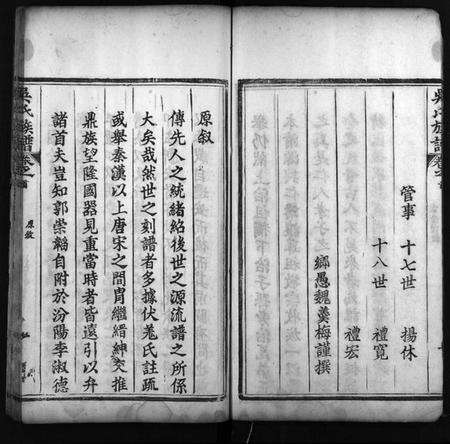 吳氏族譜 卷之首
管事 十七世 揚休
十八世 禮寬
禮宏
鄉愚魏羹梅謹撰
吳氏族譜 卷之首
原敘
原叙
傳先人之統緒紹後世之源流譜之所係
大矣哉然世之刻譜者多據伏羲氏註疏
或舉秦漢以上唐宋之間冑繼縉紳交推
鼎族望隆國器見重當時者皆遠引以弁
諸首夫豈知郭崇韜自附於汾陽李淑德